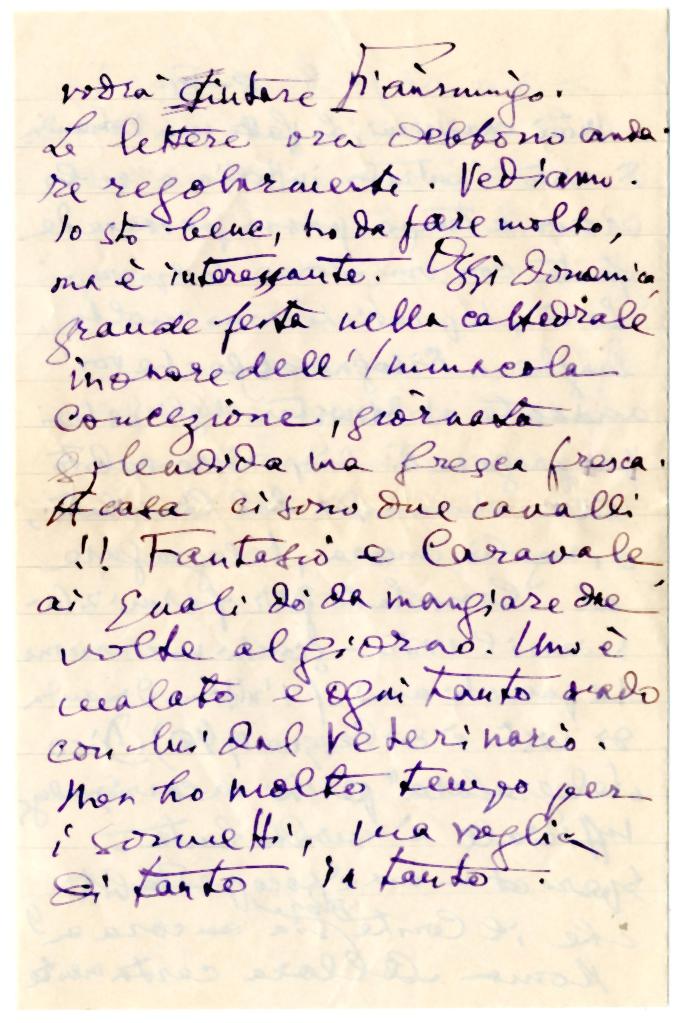 vedrà Fiammingo.
Le lettere ora debbono anda-
re regolarmente. Vediamo.
Io sto bene, ho da fare molto,
ma è interessante. Oggi domenica,
grande festa nella cattedrale
in onore dell'Immacola
concezione, giornata
splendida ma fresca.
A casa ci sono due cavalli
!! Fantasio e Caravale,
ai quali dò da mangiare due
volte al giorno. Uno è
malato e ogni tanto vado
con lui dal veterinario.
Non ho molto tempo per
i sonetti, ma voglia
di tanto in tanto.